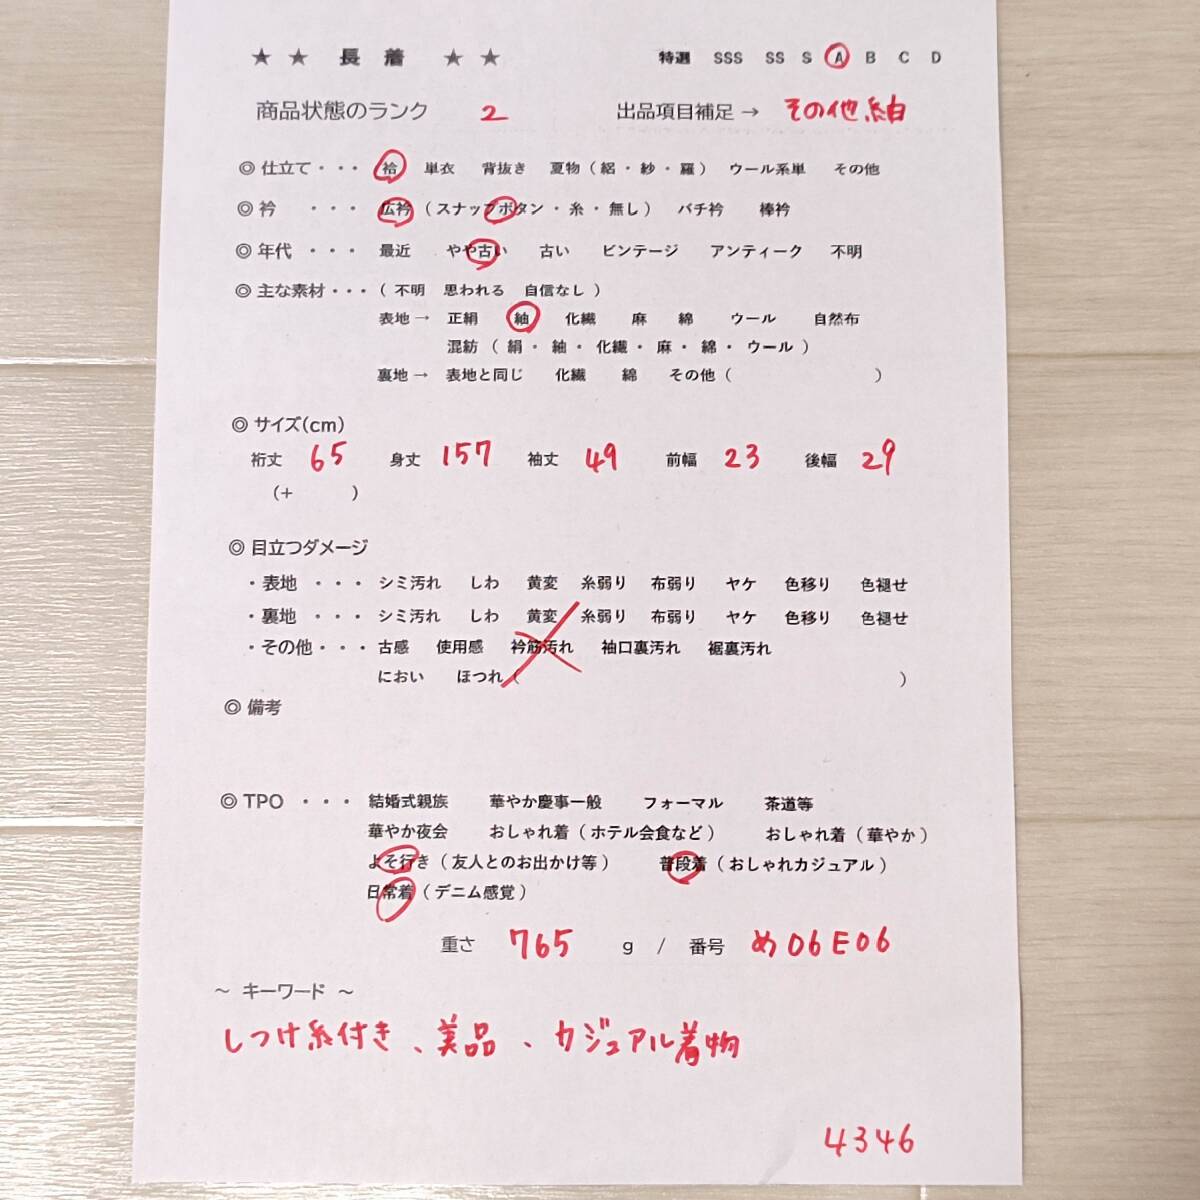 ★ ★ 長 着 ★ ★ 特選 SSS SS S A B C D
商品状態のランク 2 出品項目補足→ その他紬
◎ 仕立て・・・ 袷 単衣 背抜き 夏物(絽・紗・羅) ウール系単 その他
◎ 衿 ・・・ 広衿(スナップボタン・糸・無し) バチ衿 棒衿
◎ 年代 ・・・ 最近 やや古い 古い ビンテージ アンティーク 不明
◎ 主な素材・・・(不明 思われる 自信なし)
表地→ 正絹 紬 化繊 麻 綿 ウール 自然布
混紡(絹・紬・化繊・麻・綿・ウール)
裏地→ 表地と同じ 化繊 綿 その他( )
◎ サイズ(cm)
裄丈 65 身丈 157 袖丈 49 前幅 23 後幅 29
(+ )
◎ 目立つダメージ
・表地 ・・・ シミ汚れ しわ 黄変 糸弱り 布弱り ヤケ 色移り 色褪せ
・裏地 ・・・ シミ汚れ しわ 黄変 糸弱り 布弱り ヤケ 色移り 色褪せ
・その他・・・ 古感 使用感 衿筋汚れ 袖口裏汚れ 裾裏汚れ
におい ほつれ( )
◎ 備考
◎ TPO ・・・ 結婚式親族 華やか慶事一般 フォーマル 茶道等
華やか夜会 おしゃれ着(ホテル会食など) おしゃれ着(華やか)
よそ行き(友人とのお出かけ等) 普段着(おしゃれカジュアル)
日常着(デニム感覚)
重さ 765 g / 番号 め06E06
~ キーワード ~
しつけ糸付き、美品、カジュアル着物
4346